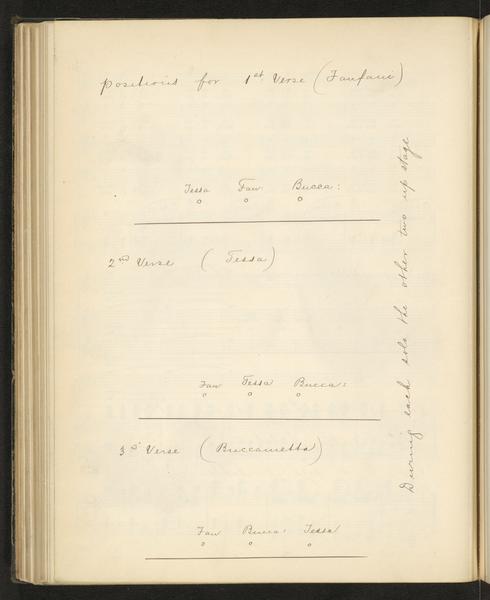 Positions for 1st Verse (Fanfani)
Tessa Fan: Bucca:
o o o
2nd Verse (Tessa)
Fan Tessa Bucca:
o o o
3rd Verse (Buccametta)
Fan Bucca: Tessa
o o o
During each solo the other two up stage